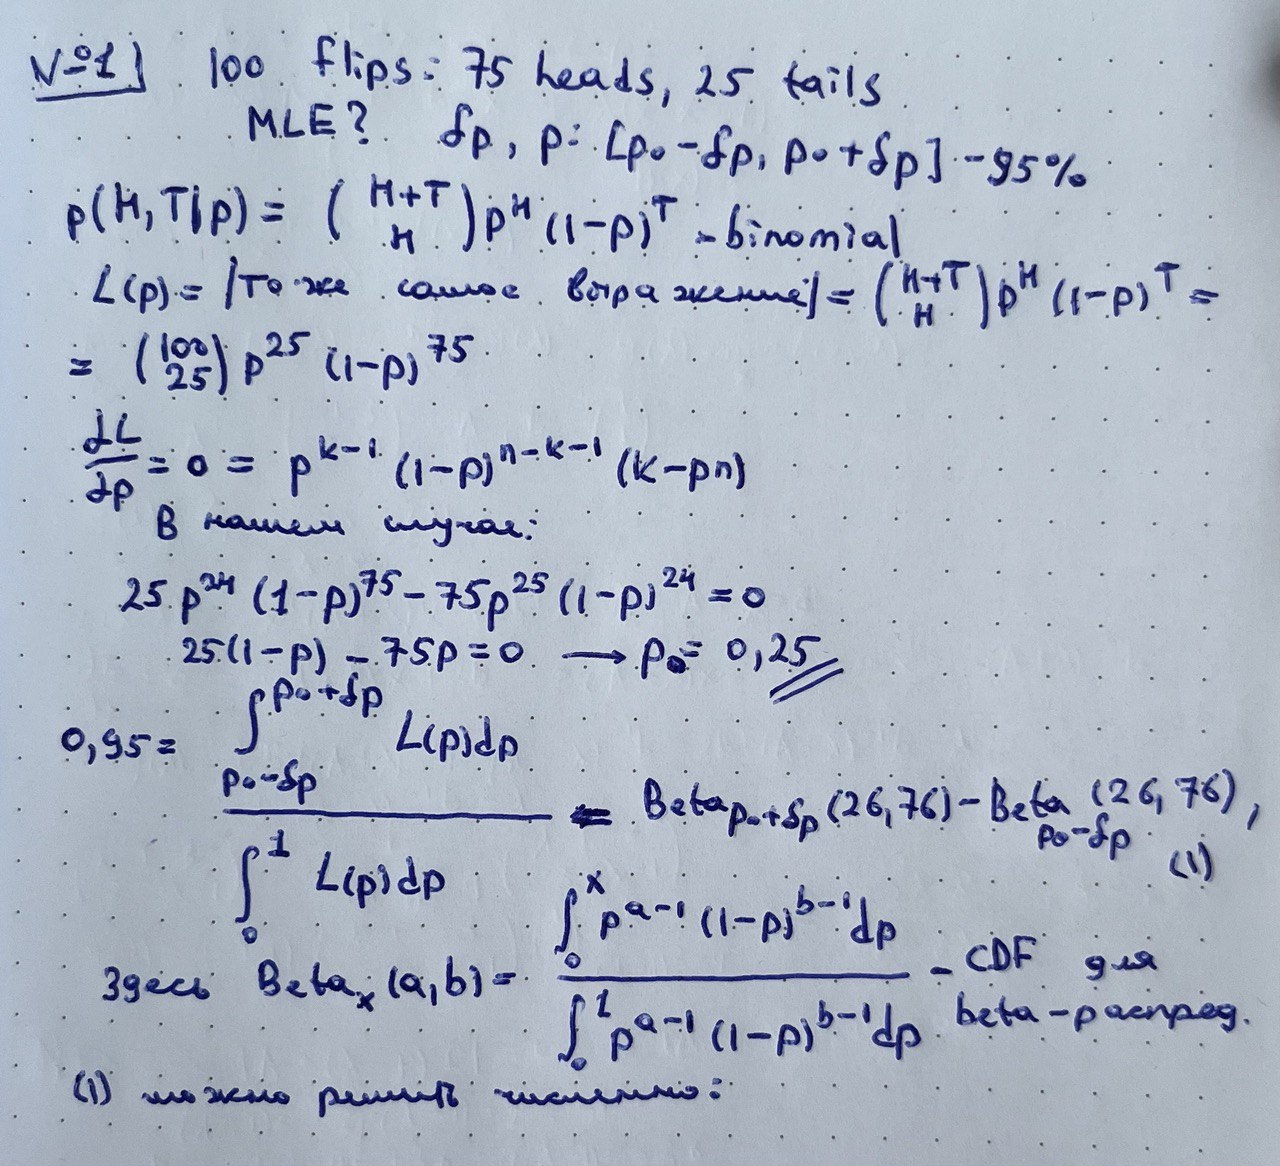 №1) 100 flips: 75 heads, 25 tails
MLE? δp, p: [p₀-δp, p₀+δp] - 95%
p(H,T|p) = (H+T H) p^H (1-p)^T - binomial
L(p) = |то же самое выражение| = (H+T H) p^H (1-p)^T =
= (100 25) p^25 (1-p)^75
∂L/∂p = 0 = p^{k-1} (1-p)^{n-k-1} (k-pn)
В нашем случае:
25 p^24 (1-p)^75 - 75p^25 (1-p)^24 = 0
25(1-p) - 75p = 0 → p₀ = 0,25
0,95 = ∫_{p₀-δp}^{p₀+δp} L(p)dp / ∫_0^1 L(p)dp = Beta_{p₀+δp}(26,76) - Beta_{p₀-δp}(26,76), (1)
Здесь Beta_x(a,b) = ∫_0^x p^{a-1} (1-p)^{b-1} dp / ∫_0^1 p^{a-1} (1-p)^{b-1} dp - CDF для beta-распред.
(1) можно решить численно: